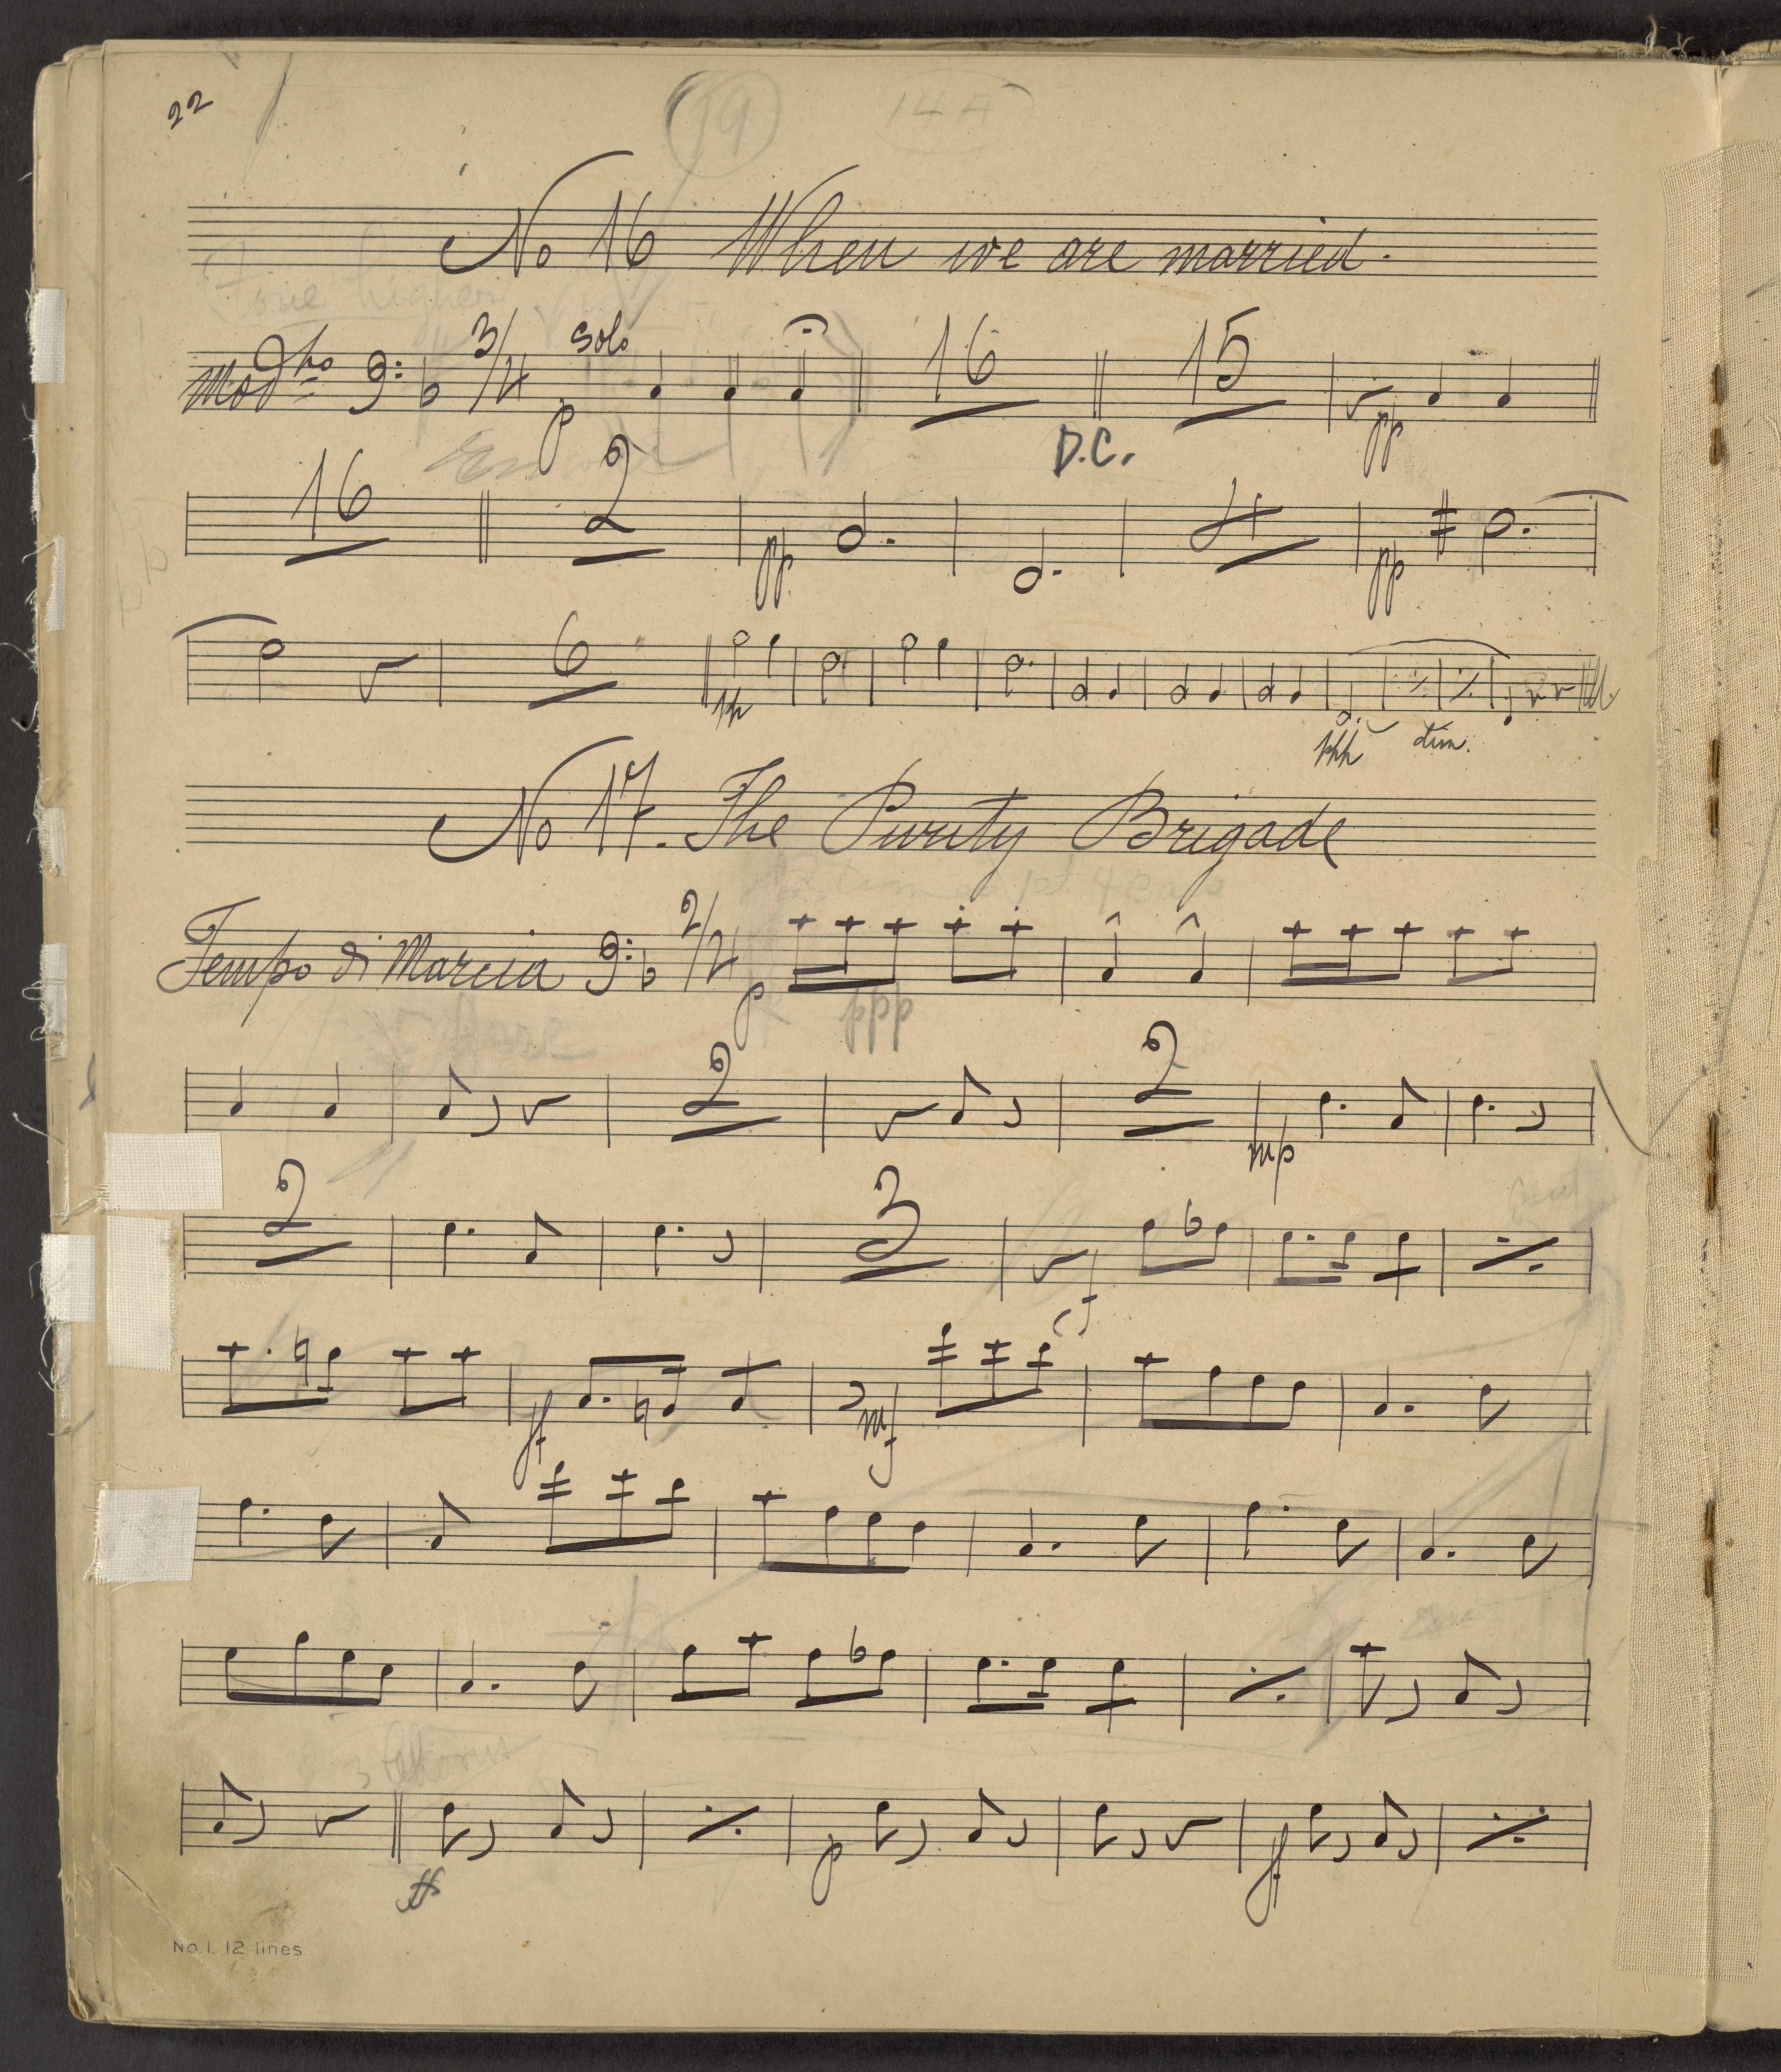 22
19
14A
No 16 When we are married.
Tone higher
Modto 3/4 Solo 16 15
p D.C. pp
16 2 4
pp pp
6
pp
ppp dim.
No 17. The Purity Brigade
1st 4 Bars
Tempo di Marcia 2/4
p ppp
2 2
mp
2 3
f
ff mf
3 Chorus
ff p ff
No 1. 12 lines